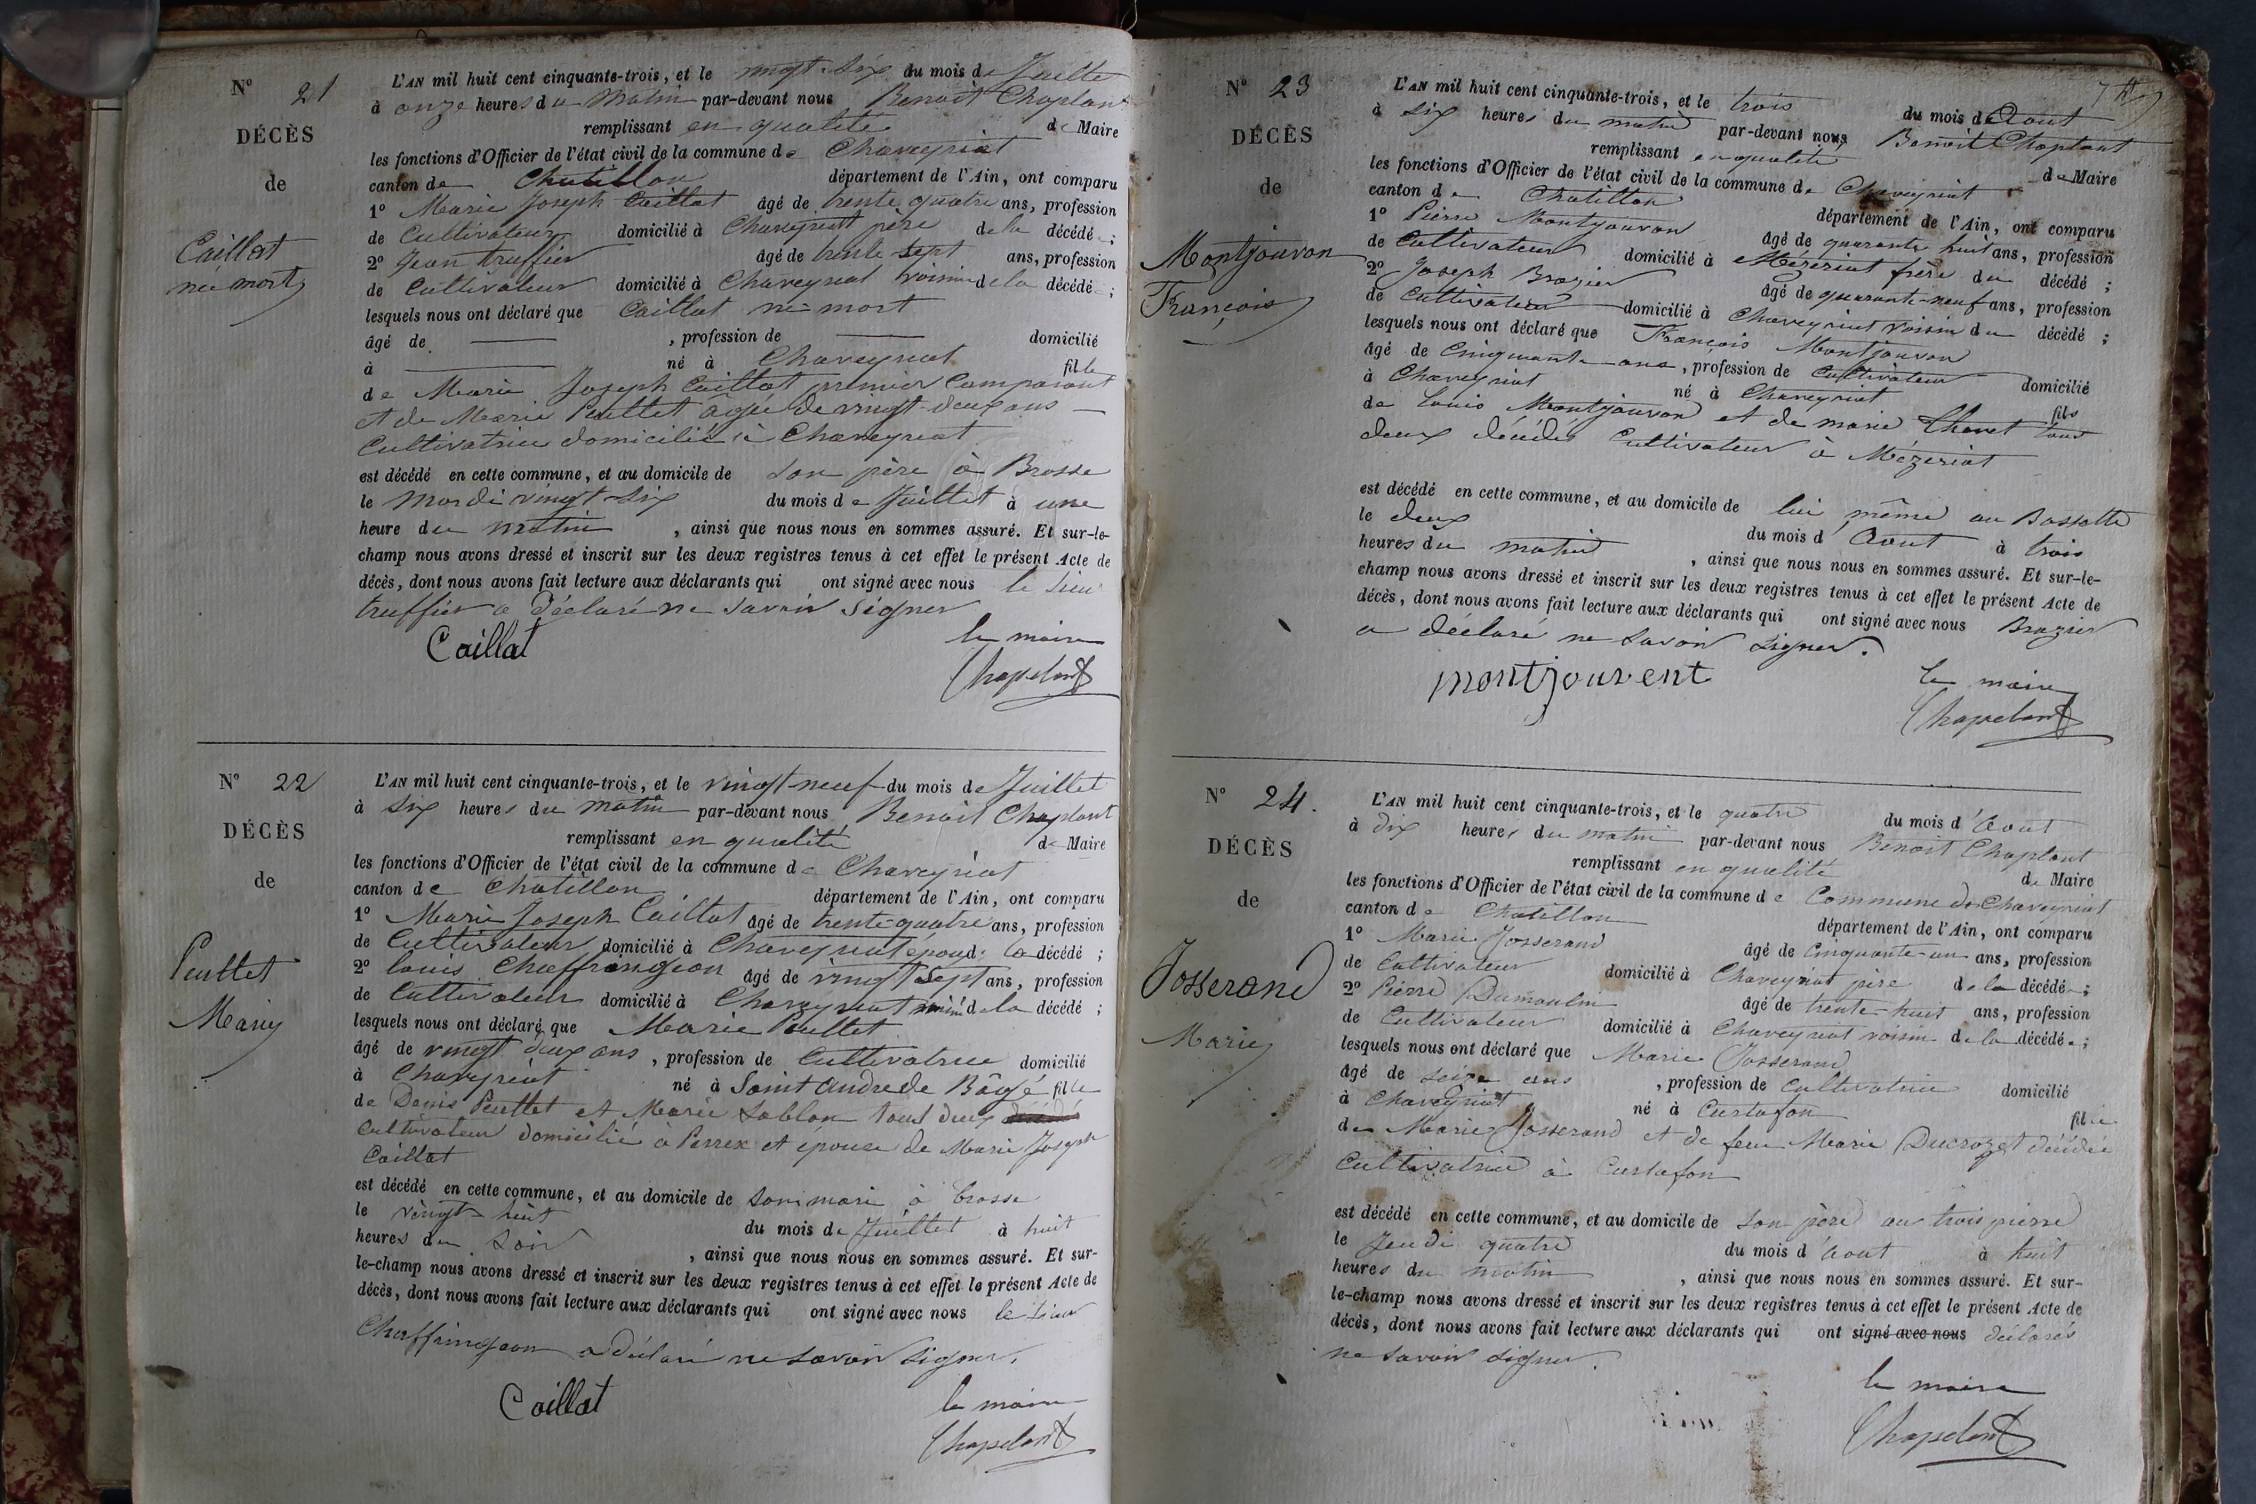 N° 21
DÉCÈS
de
Caillat
né mort
L'AN mil huit cent cinquante-trois, et le vingt-six du mois de Juillet
à onze heures du matin par-devant nous Benoit Chaplant
remplissant en qualité de Maire
les fonctions d'Officier de l'état civil de la commune de Chaveyriat
canton de Chatillon département de l'Ain, ont comparu
1° Marie Joseph Caillat âgé de trente quatre ans, profession
de Cultivateur domicilié à Chaveyriat père de la décédée ;
2° Jean truffier âgé de trente sept ans, profession
de Cultivateur domicilié à Chaveyriat voisin de la décédée ;
lesquels nous ont déclaré que Caillat né mort
âgé de , profession de domicilié
à né à Chaveyriat fille
de Marie Joseph Caillat premier Comparant
et de Marie Peullet âgée de vingt-deux ans
Cultivatrice domiciliée à Chaveyriat
est décédé en cette commune, et au domicile de son père à Brosse
le mardi vingt-six du mois de Juillet à une
heure du matin , ainsi que nous nous en sommes assuré. Et sur-le-
champ nous avons dressé et inscrit sur les deux registres tenus à cet effet le présent Acte de
décès, dont nous avons fait lecture aux déclarants qui ont signé avec nous le sieur
truffier a déclaré ne savoir signer
Caillat
le maire
Chapelant
N° 22
DÉCÈS
de
Peullet
Marie
L'AN mil huit cent cinquante-trois, et le vingt-neuf du mois de Juillet
à six heures du matin par-devant nous Benoit Chaplant
remplissant en qualité de Maire
les fonctions d'Officier de l'état civil de la commune de Chaveyriat
canton de Chatillon département de l'Ain, ont comparu
1° Marie Joseph Caillat âgé de trente-quatre ans, profession
de Cultivateur domicilié à Chaveyriat époux de la décédé ;
2° louis Chaffringeon âgé de vingt sept ans, profession
de Cultivateur domicilié à Chaveyriat voisin de la décédé ;
lesquels nous ont déclaré que Marie Peullet
âgé de vingt deux ans , profession de Cultivatrice domicilié
à Chaveyriat né à Saint andré de Bâgé fille
de Denis Peullet et Marie Sablon tout deux
Cultivateur domicilié à Perrex et epouse de Marie Joseph
Caillat
est décédé en cette commune, et au domicile de son mari à brosse
le vingt-huit du mois de Juillet à huit
heures du soir , ainsi que nous nous en sommes assuré. Et sur-
le-champ nous avons dressé et inscrit sur les deux registres tenus à cet effet le présent Acte de
décès, dont nous avons fait lecture aux déclarants qui ont signé avec nous le sieur
Chaffringeon a déclaré ne savoir signer.
Caillat
le maire
Chapelant
N° 23
DÉCÈS
de
Montjouvon
François
L'AN mil huit cent cinquante-trois, et le trois du mois de Aout
à six heures du matin par-devant nous Benoit Chaplant
remplissant en qualité de Maire
les fonctions d'Officier de l'état civil de la commune de Chaveyriat
canton de Chatillon département de l'Ain, ont comparu
1° Pierre Montjouvon âgé de quarante huit ans, profession
de Cultivateur domicilié à Mézériat frère du décédé ;
2° Joseph Brazier âgé de quarante-neuf ans, profession
de Cultivateur domicilié à Chaveyriat voisin du décédé ;
lesquels nous ont déclaré que François Montjouvon
âgé de Cinquante ans , profession de Cultivateur domicilié
à Chaveyriat né à Chaveyriat fils
de louis Montjouvon et de marie Chanet tous
deux décédés cultivateur à Mézériat
est décédé en cette commune, et au domicile de lui même au Bassatte
le deux du mois d'Aout à trois
heures du matin , ainsi que nous nous en sommes assuré. Et sur-le-
champ nous avons dressé et inscrit sur les deux registres tenus à cet effet le présent Acte de
décès, dont nous avons fait lecture aux déclarants qui ont signé avec nous Brazier
a déclaré ne savoir signer.
montjouvent
le maire
Chapelant
N° 24.
DÉCÈS
de
Josserand
Marie
L'AN mil huit cent cinquante-trois, et le quatre du mois d'Aout
à dix heures du matin par-devant nous Benoit Chaplant
remplissant en qualité de Maire
les fonctions d'Officier de l'état civil de la commune de Commune de Chaveyriat
canton de Chatillon département de l'Ain, ont comparu
1° Marie Josserand âgé de Cinquante-un ans, profession
de Cultivateur domicilié à Chaveyriat père de la décédée ;
2° Pierre Dumoulin âgé de trente-huit ans, profession
de Cultivateur domicilié à Chaveyriat voisin de la décédée ;
lesquels nous ont déclaré que Marie Josserand
âgé de seize ans , profession de cultivatrice domicilié
à Chaveyriat né à Curtafon fille
de Marie Josserand et de feue Marie Ducrozet décédée
Cultivatrice à Curtafon
est décédé en cette commune, et au domicile de son père au trois pierre
le Jeudi quatre du mois d'aout à huit
heures du matin , ainsi que nous nous en sommes assuré. Et sur-
le-champ nous avons dressé et inscrit sur les deux registres tenus à cet effet le présent Acte de
décès, dont nous avons fait lecture aux déclarants qui ont signé avec nous déclarés
ne savoir signer.
le maire
Chapelant